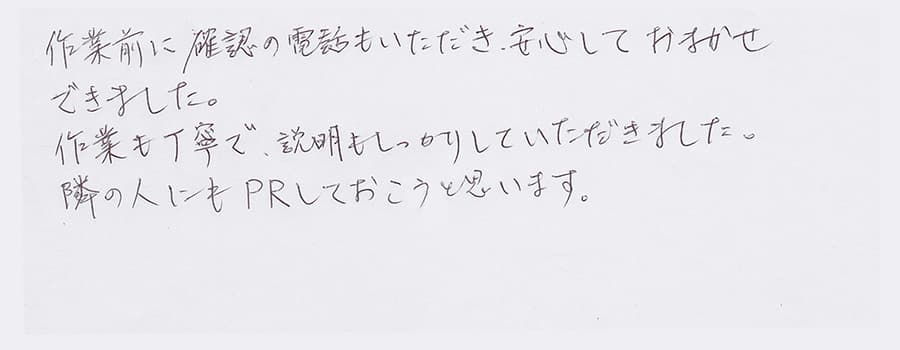 作業前に確認の電話もいただき、安心しておまかせ
できました。
作業も丁寧で、説明もしっかりしていただきました。
隣の人にもPRしておこうと思います。